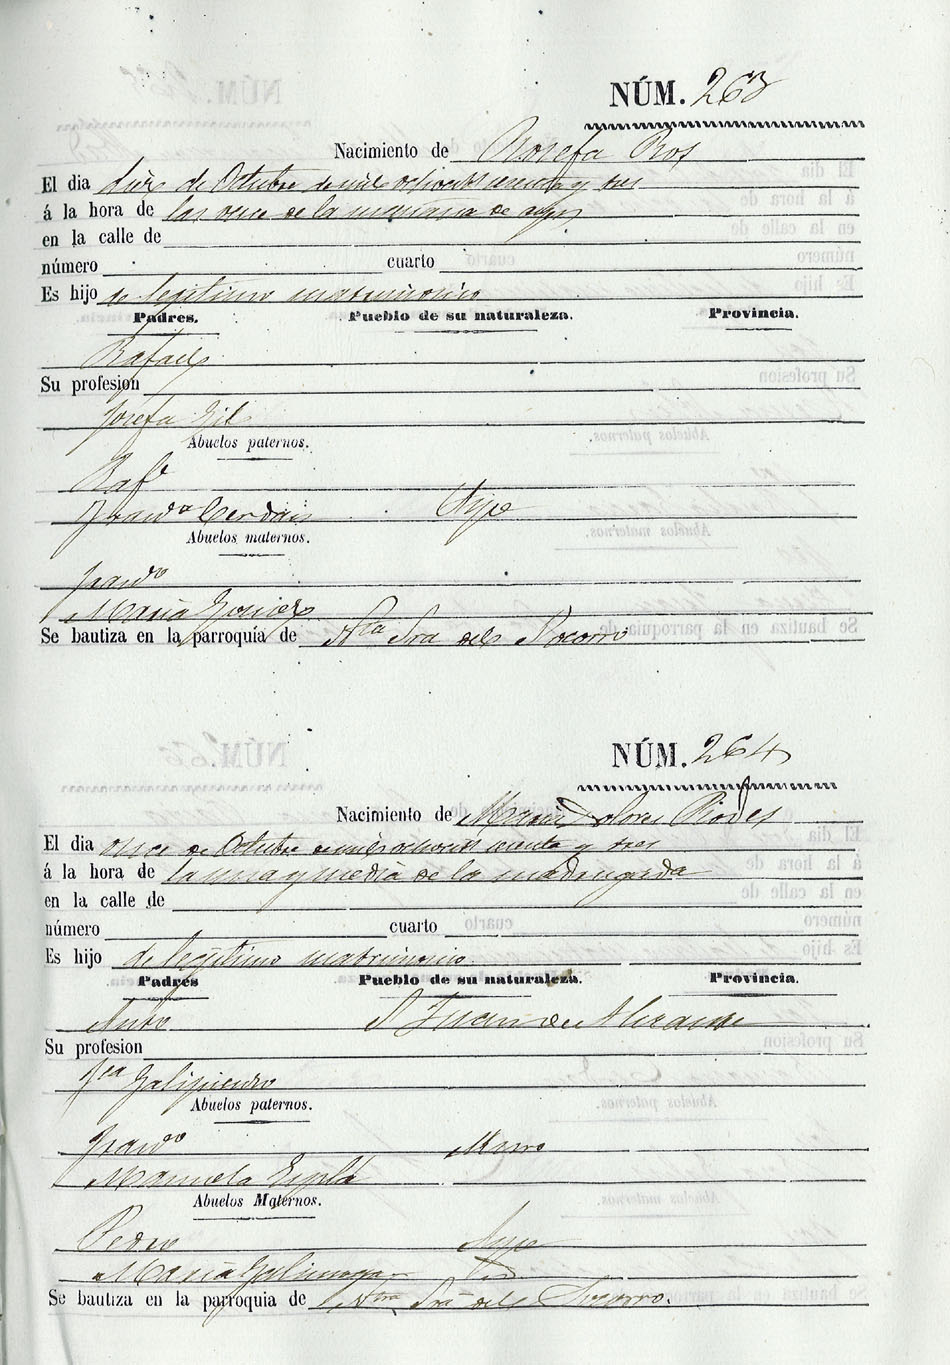 NÚM. 263
Nacimiento de Josefa Ros
El dia diez de Octubre de mil ochocientos sesenta y tres
á la hora de las once de la mañana de ayer
en la calle de
número cuarto
Es hijo de legitimo matrimonio
Padres. Pueblo de su naturaleza. Provincia.
Rafael
Su profesion
Josefa Gil
Abuelos paternos.
Raf.l
Fran.ca Cerdán
Abuelos maternos.
Fran.co
Maria
Se bautiza en la parroquia de Ntra Sra del Socorro
NÚM. 264
Nacimiento de Maria Dolores
El dia once de Octubre de mil ochocients sesenta y tres
á la hora de la una y media de la madrugada
en la calle de
número cuarto
Es hijo de legitimo matrimonio
Padres Pueblo de su naturaleza. Provincia.
Anto S Juan de Alicante
Su profesion
Abuelos paternos.
Franco
Manuela
Abuelos Maternos.
Pedro
Maria
Se bautiza en la parroquia de Ntra Sra del Socorro.